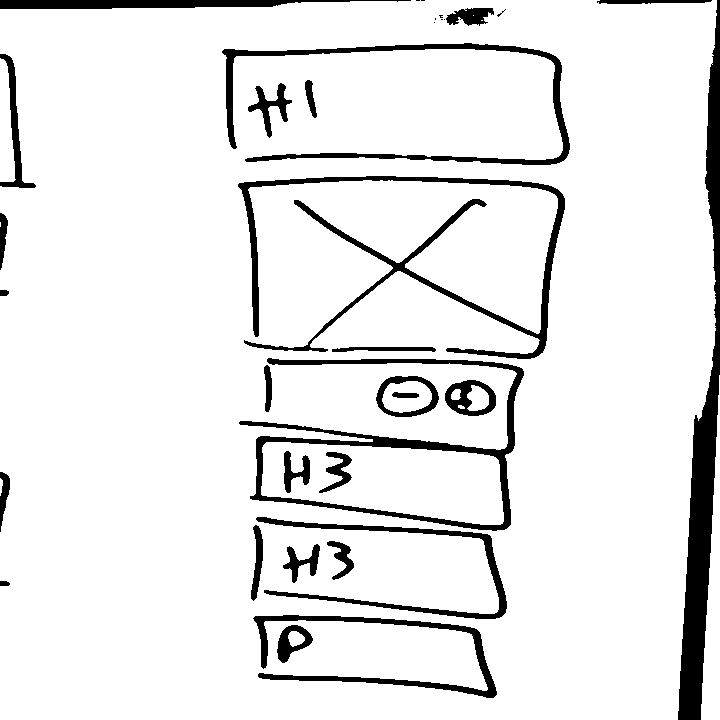 H1
H3
H3
P